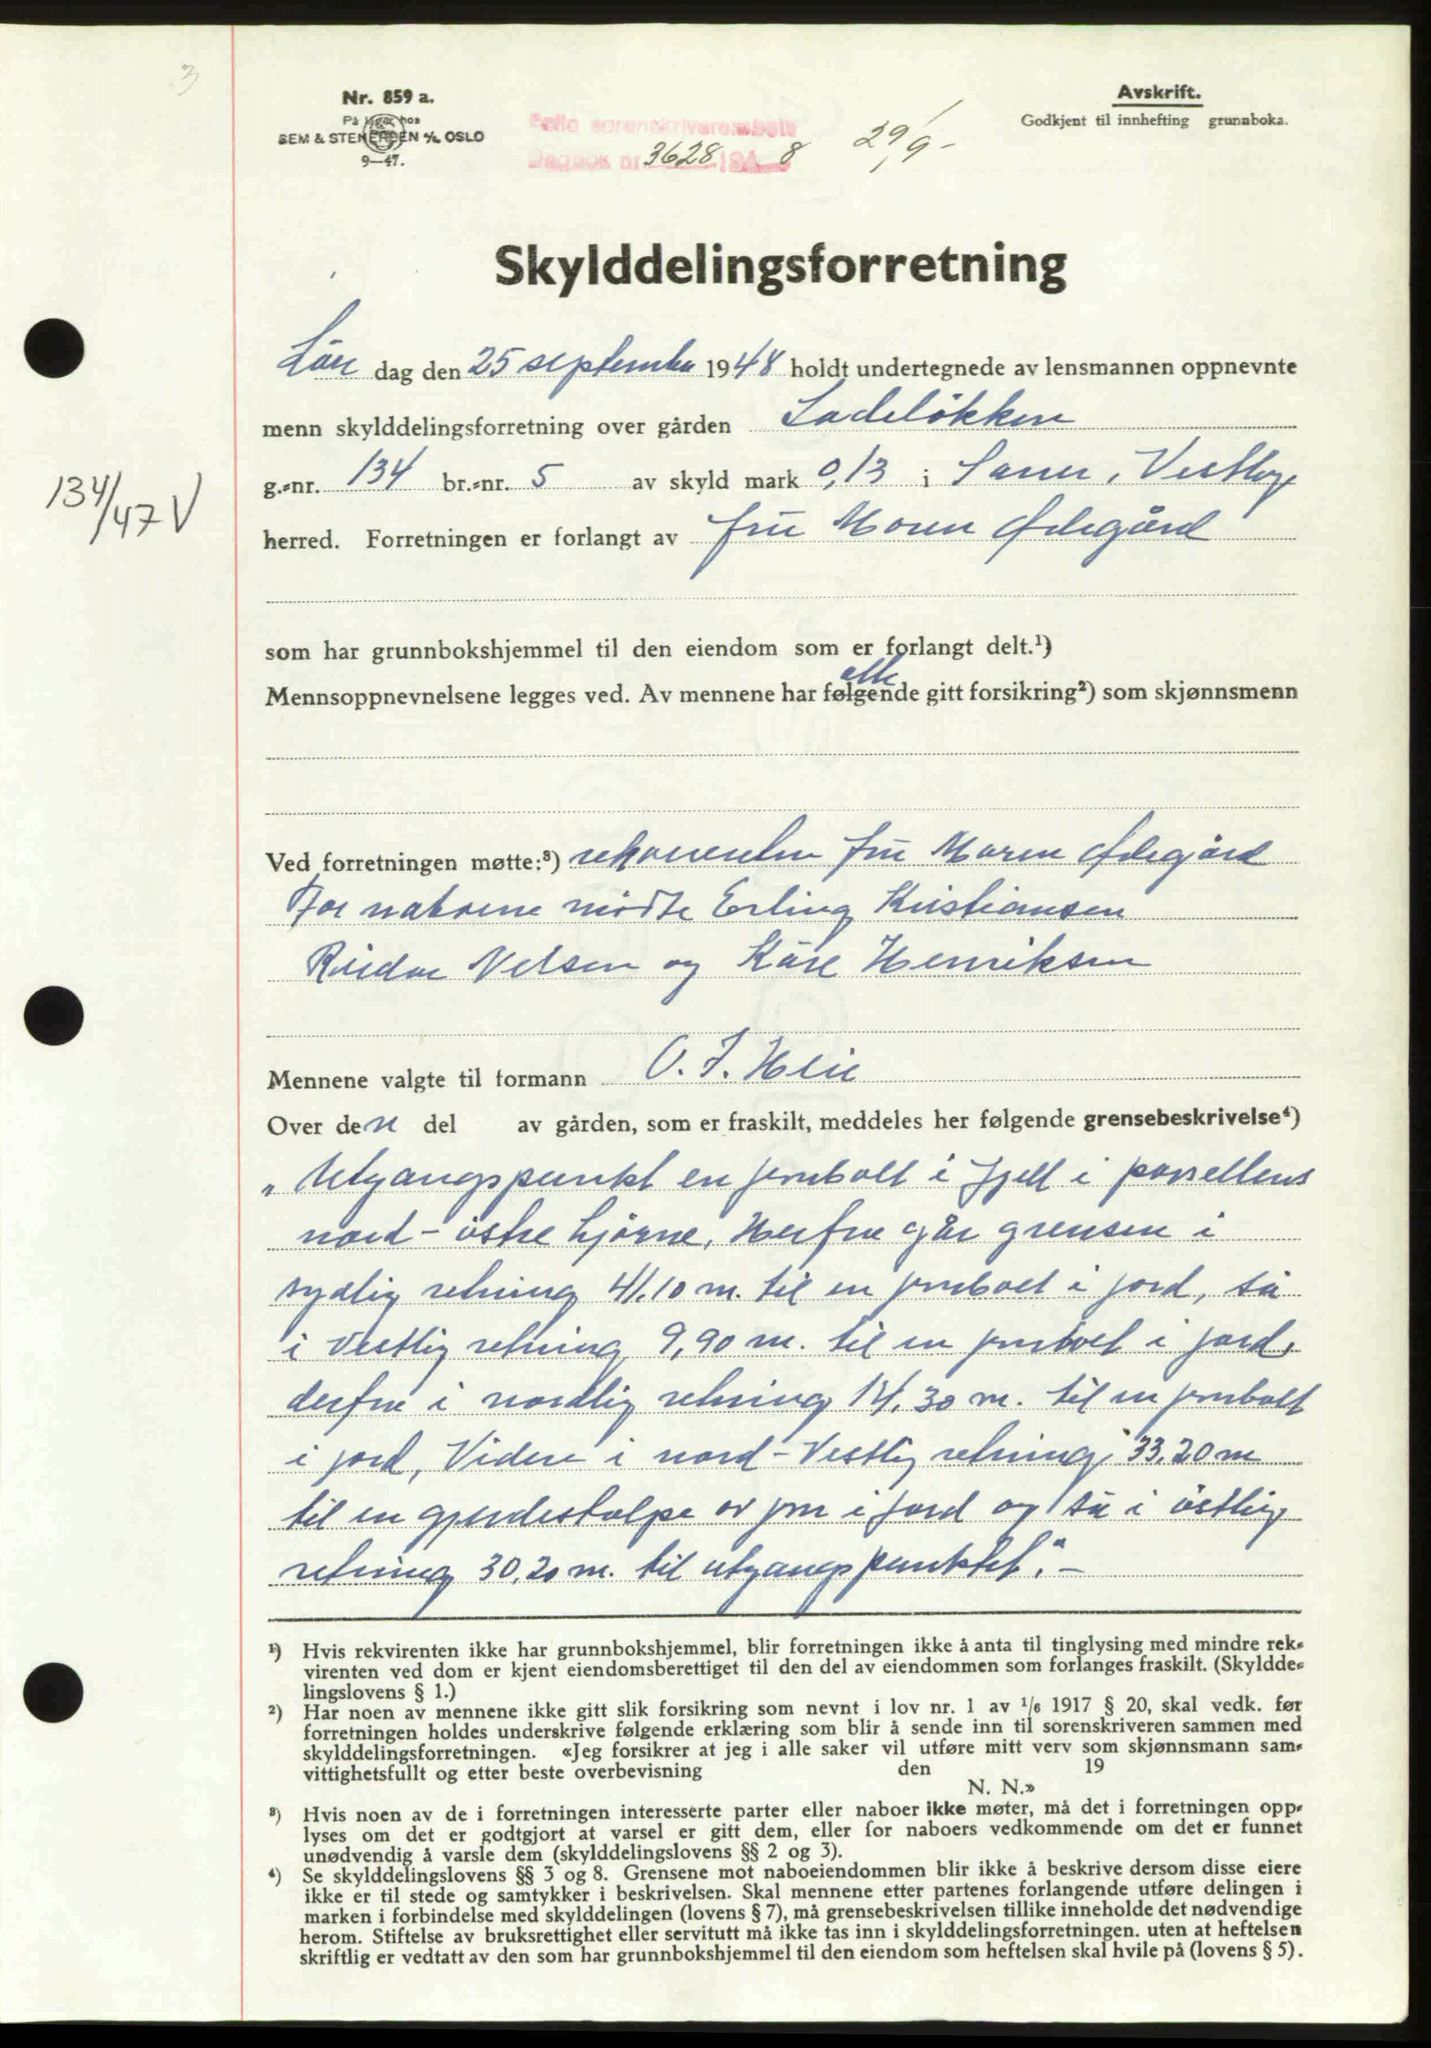 3
Nr. 859 a.
På lager hos
SEM & STENERSEN A/S OSLO
9—47.
Follo sorenskriverembete
Dagbok nr. 3628 1948
29/9-
Avskrift.
Godkjent til innhefting grunnboka.
Skylddelingsforretning
134/47 V
Lør dag den 25 september 1948 holdt undertegnede av lensmannen oppnevnte
menn skylddelingsforretning over gården Ladeløkken
g.-nr. 134 br.-nr. 5 av skyld mark 0,13 i Soner, Vestby
herred. Forretningen er forlangt av fru Maren Ødegård
som har grunnbokshjemmel til den eiendom som er forlangt delt.¹)
alle
Mennsoppnevnelsene legges ved. Av mennene har følgende gitt forsikring²) som skjønnsmenn
Ved forretningen møtte:³) rekvirenten fru Maren Ødegård
For naboene mødte Erling Kristiansen
Reidar Nelsen og Kåre Henriksen
Mennene valgte til formann O. J. Heie
Over den del av gården, som er fraskilt, meddeles her følgende grensebeskrivelse⁴)
„Utgangspunkt en jernbolt i fjell i parsellens
nord-østre hjørne, Herfra går grensen i
sydlig retning 41.10 m. til en jernbolt i jord, så
i vestlig retning 9,90 m. til en jernbolt i jord,
derfra i nordlig retning 14,30 m. til en jernbolt
i jord, Videre i nord-Vestlig retning 33,20 m
til en gjerdestolpe av jern i jord og så i østlig
retning 30,20 m. til utgangspunktet." -
¹) Hvis rekvirenten ikke har grunnbokshjemmel, blir forretningen ikke å anta til tinglysing med mindre rek-
virenten ved dom er kjent eiendomsberettiget til den del av eiendommen som forlanges fraskilt. (Skyldde-
lingslovens § 1.)
²) Har noen av mennene ikke gitt slik forsikring som nevnt i lov nr. 1 av 1/6 1917 § 20, skal vedk. før
forretningen holdes underskrive følgende erklæring som blir å sende inn til sorenskriveren sammen med
skylddelingsforretningen. «Jeg forsikrer at jeg i alle saker vil utføre mitt verv som skjønnsmann sam-
vittighetsfullt og etter beste overbevisning den 19
N. N.»
³) Hvis noen av de i forretningen interesserte parter eller naboer ikke møter, må det i forretningen opp-
lyses om det er godtgjort at varsel er gitt dem, eller for naboers vedkommende om det er funnet
unødvendig å varsle dem (skylddelingslovens §§ 2 og 3).
⁴) Se skylddelingslovens §§ 3 og 8. Grensene mot naboeiendommen blir ikke å beskrive dersom disse eiere
ikke er til stede og samtykker i beskrivelsen. Skal mennene etter partenes forlangende utføre delingen i
marken i forbindelse med skylddelingen (lovens § 7), må grensebeskrivelsen tillike inneholde det nødvendige
herom. Stiftelse av bruksrettighet eller servitutt må ikke tas inn i skylddelingsforretningen. uten at heftelsen
skriftlig er vedtatt av den som har grunnbokshjemmel til den eiendom som heftelsen skal hvile på (lovens § 5).